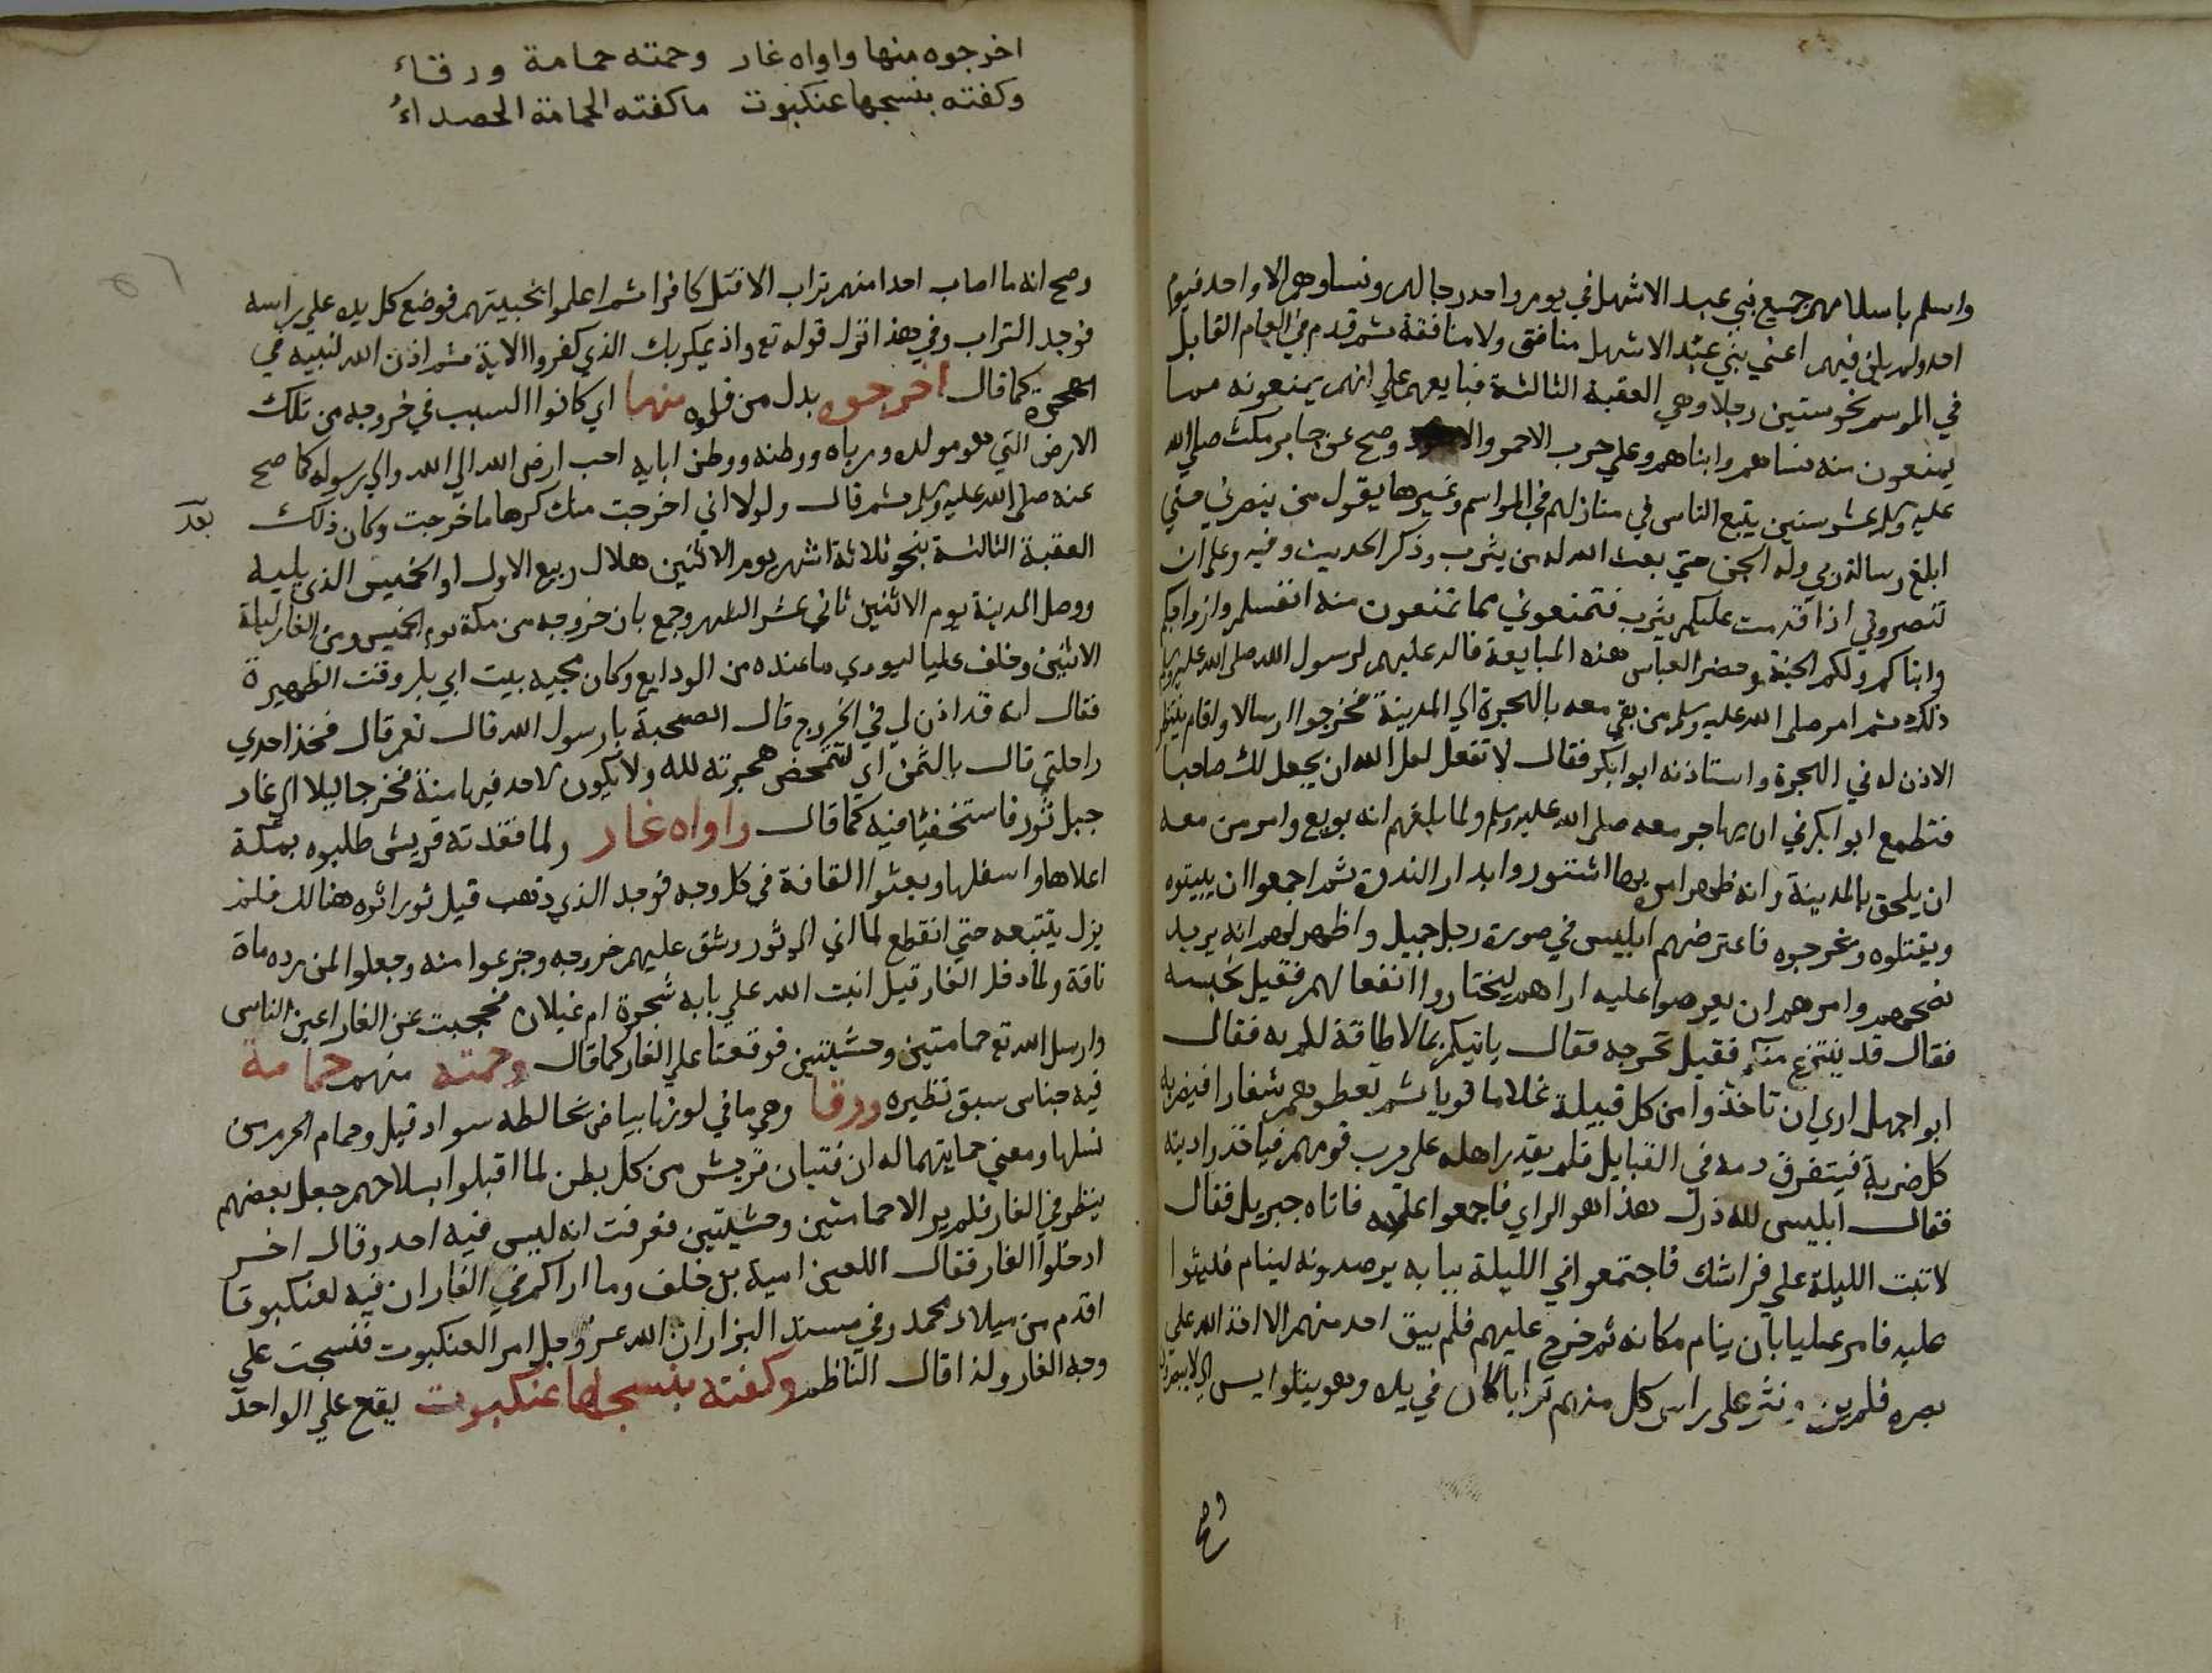 واسلم باسلامهم جميع بني عبد الاشهل في يوم واحد رجالهم ونساوهم الا واحد فيوم
احد ولم يكن فيهم اعني بني عبد الاشهل منافق ولا منافقة ثم قدم في العام القابل
في الموسم نحو ستين رجلا وهي العقبة الثالثة فبايعهم علي انهم يمنعونه مما
يمنعون منه نساهم وابناهم وعلي حرب الاحمر والاسود وصح عن جابر مكث صلي الله
عليه وسلم عشر سنين يتبع الناس في منازلهم في المواسم وغيرها يقول من ينصرني حتي
ابلغ رسالة ربي وله الجنة حتي بعث الله له من يثرب وذكر الحديث وفيه وعلي ان
تنصروني اذا قدمت عليكم يثرب فتمنعوني مما تمنعون منه انفسكم وازواجكم
وابناكم ولكم الجنة وحضر العباس هذه المبايعة فاكد عليهم لرسول الله صلي الله عليه وسلم
ذلك ثم امر صلي الله عليه وسلم من بقي معه بالهجرة الي المدينة فخرجوا ارسالا واقام ينتظر
الاذن له في الهجرة واستاذنه ابو ابكر فقال لا تفعل لعل الله ان يجعل لك صاحبا
فتطمع ابو ابكر في ان يهاجر معه صلي الله عليه وسلم ولما بلغهم انه بويع وامر من معه
ان يلحق بالمدينة وانه ظهر امره بها اشتوروا بدار الندوة ثم اجمعوا ان يبيتوه
ويقتلوه ويخرجوه فاعترضهم ابليس في صورة رجل جميل واظهر لهم انه يريد
نصحهم وامرهم ان يعرضوا عليه اراهم ليختاروا انفعا لهم فقيل نحبسه
فقال قد ينتزع منكم فقيل نخرجه فقال ياتيكم بما لا طاقة لكم به فقال
ابو اجهل اري ان تاخذوا من كل قبيلة غلاما قويا ثم تعطوهم شفارا فيضربه
كل ضربة فيتفرق دمه في القبايل فلم يقدر اهله علي حرب قومهم فياخذوا ديته
فقال ابليس لله درك هذا هو الراي فاجمعوا عليه فاتاه جبريل فقال
لا تبت الليلة علي فراشك فاجتمعوا في الليلة ببابه يرصدونه لينام فليثوا
عليه فامر عليا بان ينام مكانه ثم خرج عليهم فلم يبق احد منهم الا اخذ الله علي
بصره فلم يره ونثر علي راس كل منهم ترابا كان في يده وهو يتلوا يس الي لا يبصرون
وصح
اخرجوه منها واواه غار وحمته حمامة ورقاء
وكفته بنسجها عنكبوت ما كفته الحمامة الحصداءُ
وصح انه ما اصاب احدا منهم تراب الا قتل كافرا ثم اعلموا بخيبتهم فوضع كل يده علي راسه
فوجد التراب وفي هذا نزل قوله تع واذ يمكر بك الذي كفروا الاية ثم اذن الله لنبيه في
الهجرة كما قال اخرجوه بدل من قلوه منها اي كانوا السبب في خروجه من تلك
الارض التي هو مولده ومرباه ووطنه ووطن ابايه احب ارض الله الي الله والي رسوله كما صح
عنه صلي الله عليه وسلم ثم قال ولولا اني اخرجت منك كرها ما خرجت وكان ذلك بعد
العقبة الثالثة بنحو ثلاثة اشهر يوم الاثنين هلال ربيع الاول او الخميس الذي يليه
ووصل المدينة يوم الاثنين ثاني عشر الشهر وجمع بان خروجه من مكة يوم الخميس ومن الغار ليلة
الاثنين وخلف عليا ليودي ما عنده من الودايع وكان مجيه بيت ابي بكر وقت الظهيرة
فقال انه قد اذن لي في الخروج قال الصحبة يا رسول الله قال نعم قال فخذ احدي
راحلتي قال بالثمن اي لتتمحض هجرته لله ولا يكون لاحد فيها منة فخرجا ليلا الي غار
جبل ثور فاستخفيا فيه كما قال واواه غار ولما فقدته قريش طلبوه بمكة
اعلاها واسفلها وبعثوا القافة في كل وجه فوجد الذي ذهب قبل ثور اثره هنالك فلم
يزل يتبعه حتي انقطع لما اتي الي ثور وشق عليهم خروجه وجزعوا منه وجعلوا لمن رده ماة
ناقة ولما دخل الغار قيل انبت الله علي بابه شجرة ام غيلان فحجبت عن الغار اعين الناس
وارسل الله تع حمامتين وحشيتين فوقعتا علي الغار كما قال وحمته منهم حمامة
فيه جناس سبق نظيره ورقا وهي ما في لونها بياض يخالطه سواد قيل وحمام الحرم من
نسلها ومعني حمايتهما له ان فتيان قريش من كل بطن لما اقبلوا بسلاحهم جعل بعضهم
ينظر في الغار فلم ير الا حمامتين وحشيتين فعرفت انه ليس فيه احد وقال اخر
ادخلوا الغار فقال اللعين امية بن خلف وما اراكم في الغار ان فيه لعنكبوتا
اقدم من ميلاد محمد وفي مسند البزار ان الله عز وجل امر العنكبوت فنسجت علي
وجه الغار ولذا قال الناظم وكفته بنسجها عنكبوت يقع علي الواحد